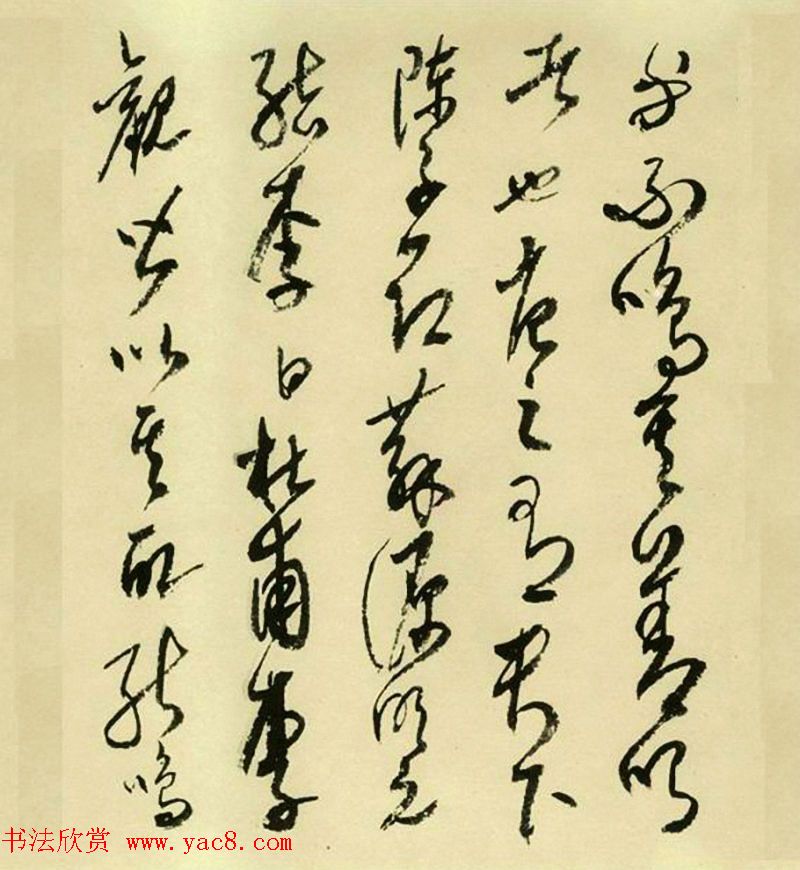 乎不鳴其善鳴
者也唐之有天下
陳子昂蘇源明元
結李白杜甫李
觀皆以其所能鳴
书法欣赏 www.yac8.com